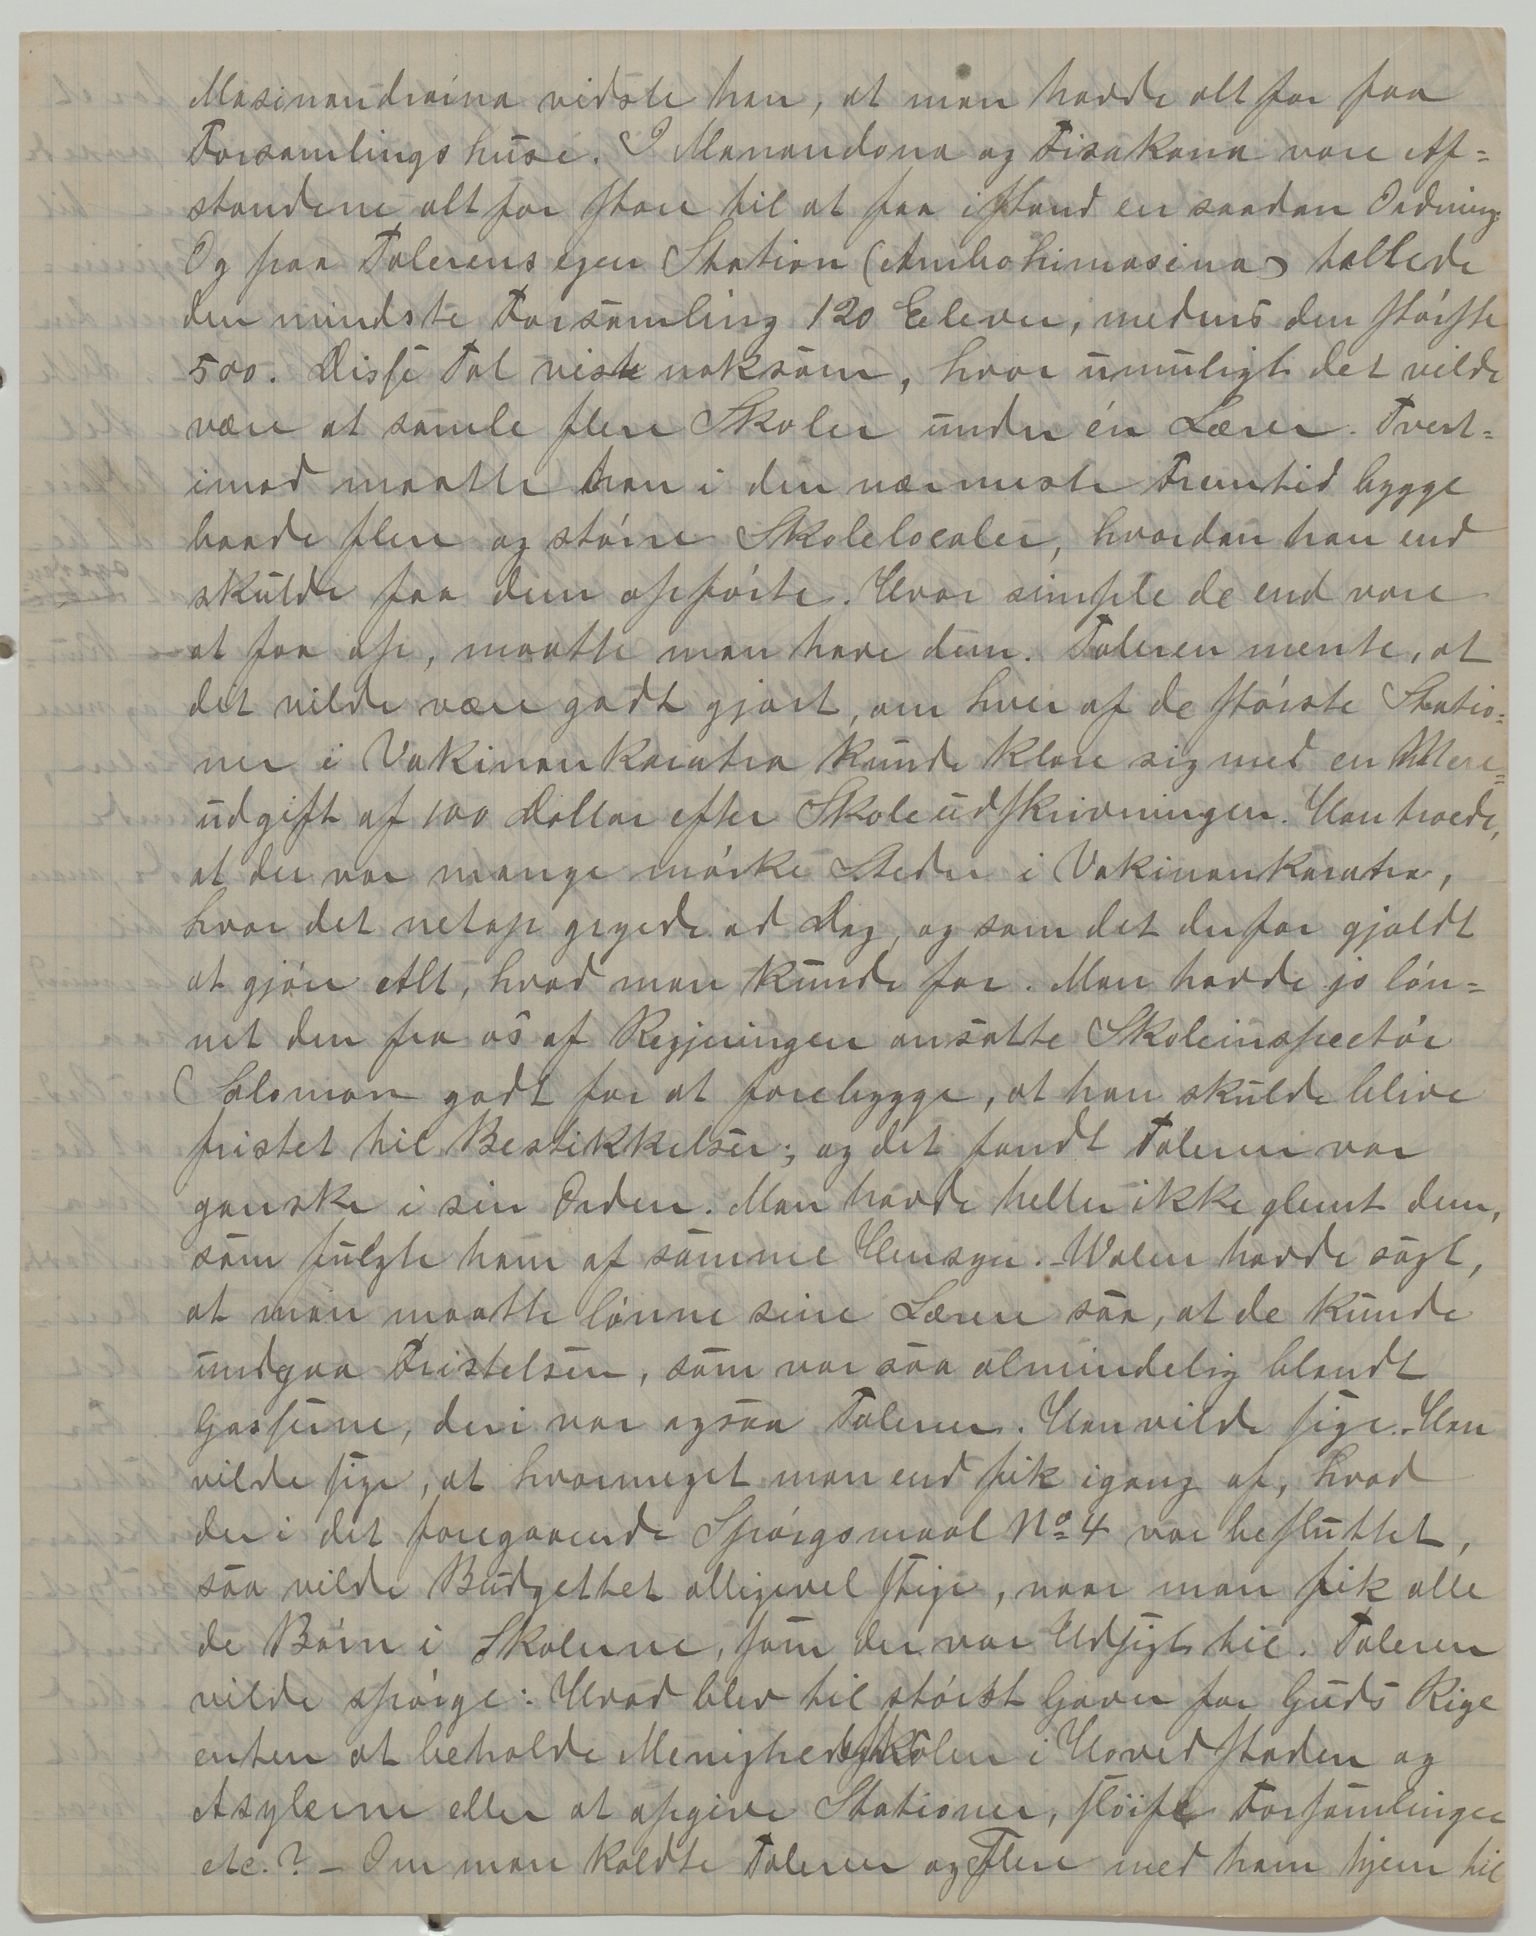 Masinandraina vidste han, at man havde alt for faa
Forsamlingshuse. I Manandona og Fisakana vare Af=
standene alt for store til at faa istand en saadan Ordning.
Og paa Talerens egen Station (Ambohimasina) tallede
den mindste Forsamling 120 Elever, medens den største
500. Disse Tal viste noksom, hvor umuligt det vilde
være at samle flere Skoler under én Lærer. Tvert=
imod maatte han i den nærmeste Fremtid bygge
baade flere og større Skolelocaler, hvordan han end
skulde faa dem opførte. Hvor simple de end vare
at faa op, maatte man have dem. Taleren mente, at
det vilde være godt gjort, om hver af de største Statio=
ner i Vakinankaratra kunde klare sig med en Mere=
udgift af 100 Dollar efter Skoleudskrivningen. Han troede,
at der var mange mørke Steder i Vakinankaratra,
hvor det netop gryede ad Dag, og som det derfor gjaldt
at gjøre Alt, hvad man kunde for. Man havde jo løn=
net den fra os af Regjeringen ansatte Skoleinspectør
Salomon godt for at forebygge, at han skulde blive
fristet til Bestikkelser; og det fandt Taleren var
ganske i sin Orden. Man havde heller ikke glemt dem,
som fulgte ham af samme Hensyn. Walen havde sagt,
at man maatte lønne sine Lærere saa, at de kunde
undgaa Fristelsen, som var saa almindelig blandt
Gasserne, deri var ogsaa Taleren. Han vilde sige. Han
vilde sige, at hvormeget man end fik igang af, hvad
der i det foregaaende Spørgsmaal No 4 var besluttet,
saa vilde Budgettet alligevel stige, naar man fik alle
de Børn i Skolerne, som der var Udsigt til. Taleren
vilde spørge: Hvad blev til størst Gavn for Guds Rige
enten at beholde Menighedsskolen i Hovedstaden og
Asylerne eller at opgive Stationer, sløife Forsamlinger
etc.? – Om man kaldte Taleren og Flere med ham hjem til